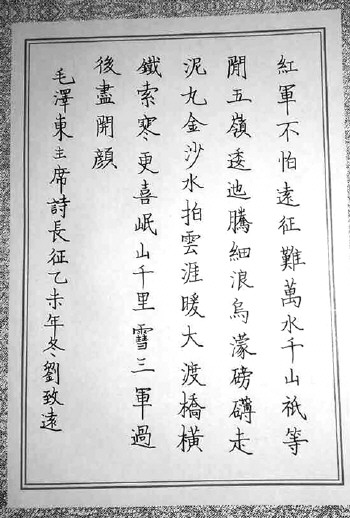 紅軍不怕遠征難萬水千山祇等
閒五嶺逶迤騰細浪烏濛磅礴走
泥丸金沙水拍雲涯暖大渡橋橫
鐵索寒更喜岷山千里雪三軍過
後盡開顔
毛澤東主席詩長征乙未年冬劉致遠